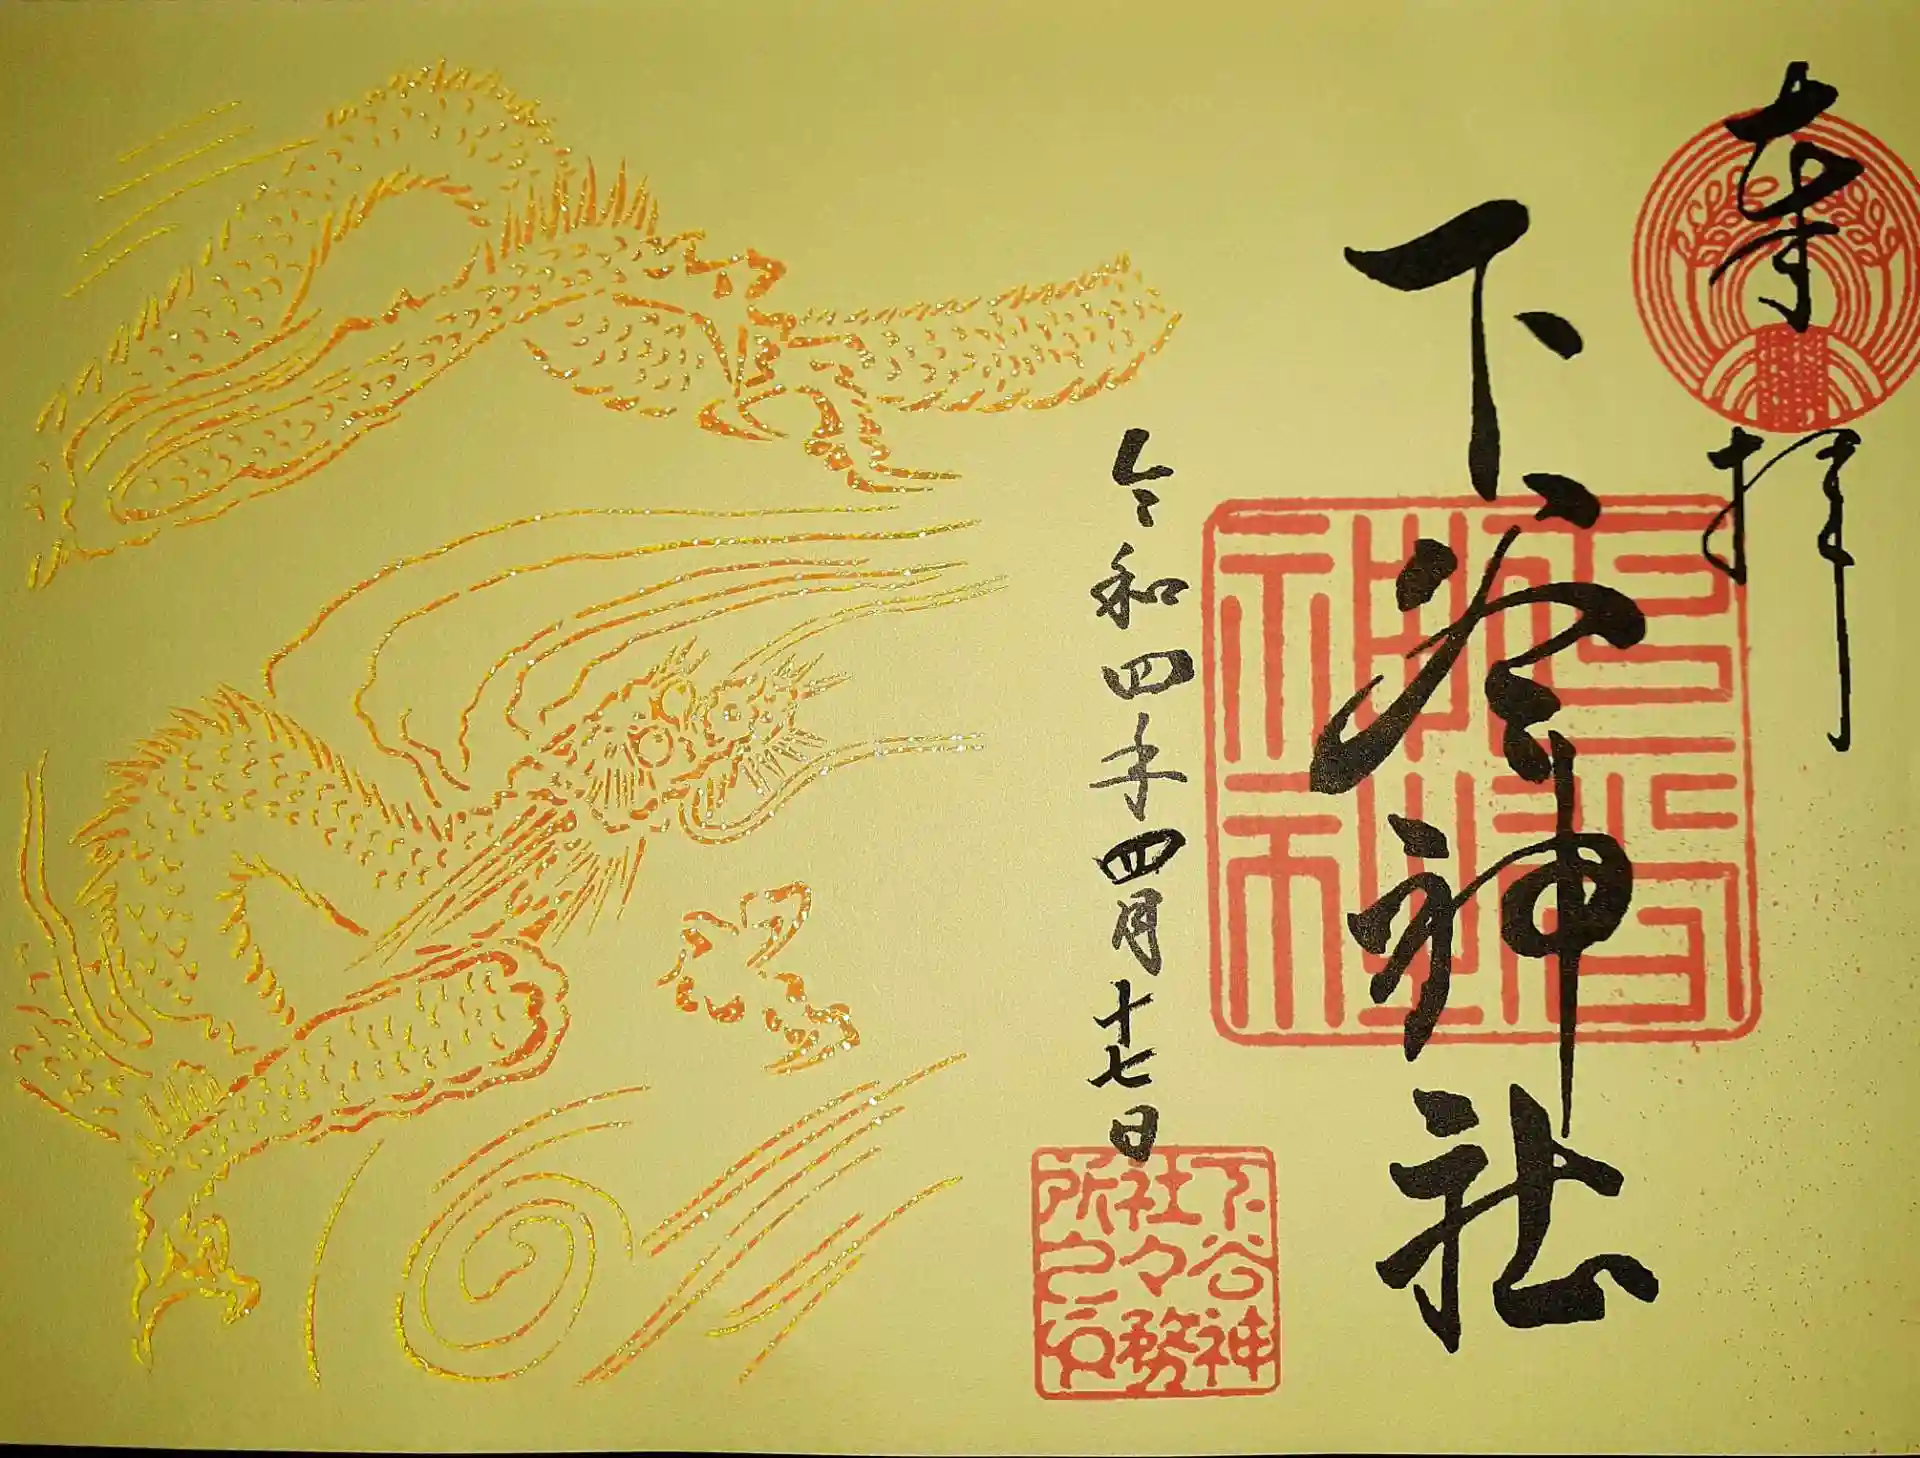 奉拝
下谷神社
令和四年四月十七日
下谷神
社々務
所之印